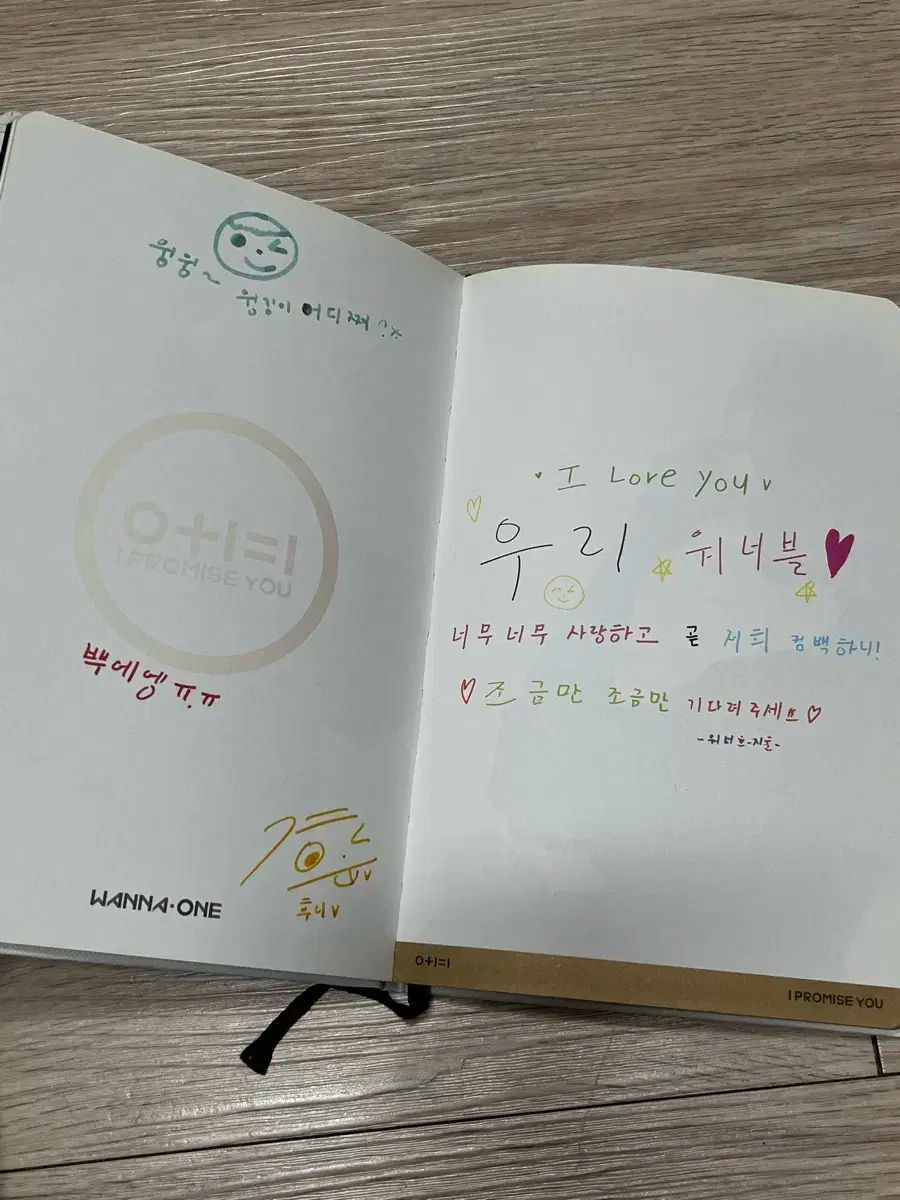 웡웡~
웜깅이 어디쪄?
0+1=1
I PROMISE YOU
뿌에엥ㅠ.ㅠ
후니v
WANNA·ONE
I Love You v
우리 워너블
너무너무 사랑하고 곧 저희 컴백하니!
조금만 조금만 기다려주세요
0+1=1
I PROMISE YOU